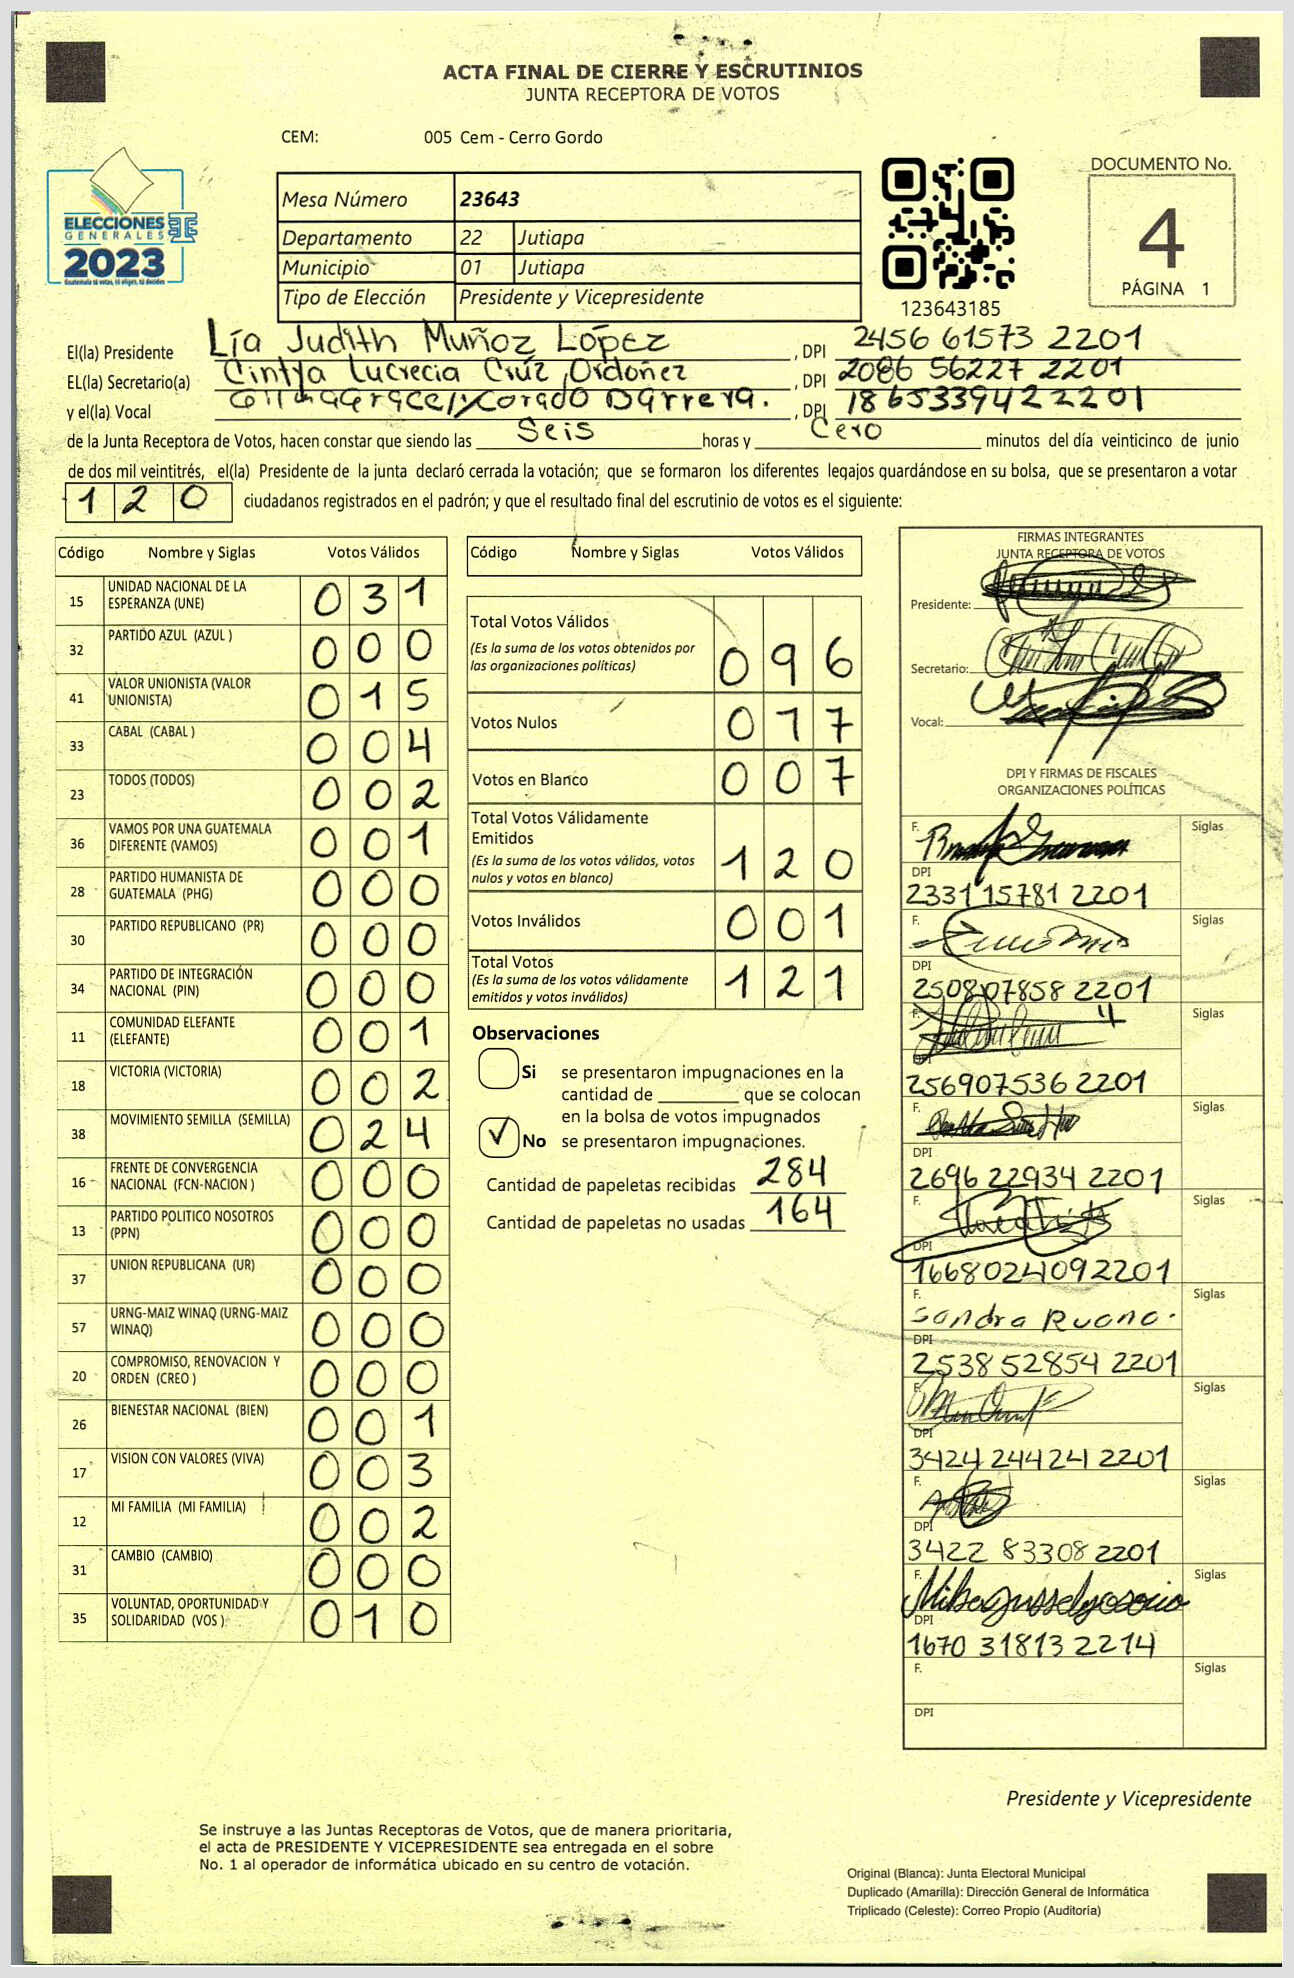 ACTA FINAL DE CIERRE Y ESCRUTINIOS
JUNTA RECEPTORA DE VOTOS
CEM: 005 Cem - Cerro Gordo
ELECCIONES
GENERALES
2023
Guatemala tú votas, tú eliges, tú decides
Mesa Número 23643
Departamento 22 Jutiapa
Municipio 01 Jutiapa
Tipo de Elección Presidente y Vicepresidente
123643185
DOCUMENTO No.
4
PÁGINA 1
El(la) Presidente Lía Judith Muñoz López , DPI 2456 61573 2201
EL(la) Secretario(a) Cintya Lucrecia Cruz Ordoñez , DPI 2086 56227 2201
y el(la) Vocal Corado Barrera. , DPI 1865339422201
de la Junta Receptora de Votos, hacen constar que siendo las Seis horas y Cero minutos del día veinticinco de junio
de dos mil veintitrés, el(la) Presidente de la junta declaró cerrada la votación; que se formaron los diferentes legajos quardándose en su bolsa, que se presentaron a votar
120 ciudadanos registrados en el padrón; y que el resultado final del escrutinio de votos es el siguiente:
Código Nombre y Siglas Votos Válidos
15 UNIDAD NACIONAL DE LA ESPERANZA (UNE) 031
32 PARTIDO AZUL (AZUL ) 000
41 VALOR UNIONISTA (VALOR UNIONISTA) 015
33 CABAL (CABAL ) 004
23 TODOS (TODOS) 002
36 VAMOS POR UNA GUATEMALA DIFERENTE (VAMOS) 001
28 PARTIDO HUMANISTA DE GUATEMALA (PHG) 000
30 PARTIDO REPUBLICANO (PR) 000
34 PARTIDO DE INTEGRACIÓN NACIONAL (PIN) 000
11 COMUNIDAD ELEFANTE (ELEFANTE) 001
18 VICTORIA (VICTORIA) 002
38 MOVIMIENTO SEMILLA (SEMILLA) 024
16 FRENTE DE CONVERGENCIA NACIONAL (FCN-NACION ) 000
13 PARTIDO POLITICO NOSOTROS (PPN) 000
37 UNION REPUBLICANA (UR) 000
57 URNG-MAIZ WINAQ (URNG-MAIZ WINAQ) 000
20 COMPROMISO, RENOVACION Y ORDEN (CREO ) 000
26 BIENESTAR NACIONAL (BIEN) 001
17 VISION CON VALORES (VIVA) 003
12 MI FAMILIA (MI FAMILIA) 002
31 CAMBIO (CAMBIO) 000
35 VOLUNTAD, OPORTUNIDAD Y SOLIDARIDAD (VOS ) 010
Código Nombre y Siglas Votos Válidos
Total Votos Válidos 096
(Es la suma de los votos obtenidos por
las organizaciones políticas)
Votos Nulos 017
Votos en Blanco 007
Total Votos Válidamente
Emitidos 120
(Es la suma de los votos válidos, votos
nulos y votos en blanco)
Votos Inválidos 001
Total Votos 121
(Es la suma de los votos válidamente
emitidos y votos inválidos)
Observaciones
Si se presentaron impugnaciones en la
cantidad de ________ que se colocan
en la bolsa de votos impugnados
No se presentaron impugnaciones.
Cantidad de papeletas recibidas 284
Cantidad de papeletas no usadas 164
FIRMAS INTEGRANTES
JUNTA RECEPTORA DE VOTOS
Presidente:
Secretario:
Vocal:
DPI Y FIRMAS DE FISCALES
ORGANIZACIONES POLÍTICAS
F. Siglas
DPI
2331 15781 2201
F. Siglas
DPI
250807858 2201
F. Siglas
DPI
256907536 2201
F. Siglas
DPI
2696 22934 2201
F. Siglas
DPI
1668024092201
F. Siglas
Sandra Ruano.
DPI
2538 52854 2201
F. Siglas
DPI
3424 24424 2201
F. Siglas
DPI
3422 83308 2201
F. Siglas
DPI
1670 31813 2214
F. Siglas
DPI
Presidente y Vicepresidente
Se instruye a las Juntas Receptoras de Votos, que de manera prioritaria,
el acta de PRESIDENTE Y VICEPRESIDENTE sea entregada en el sobre
No. 1 al operador de informática ubicado en su centro de votación.
Original (Blanca): Junta Electoral Municipal
Duplicado (Amarilla): Dirección General de Informática
Triplicado (Celeste): Correo Propio (Auditoría)